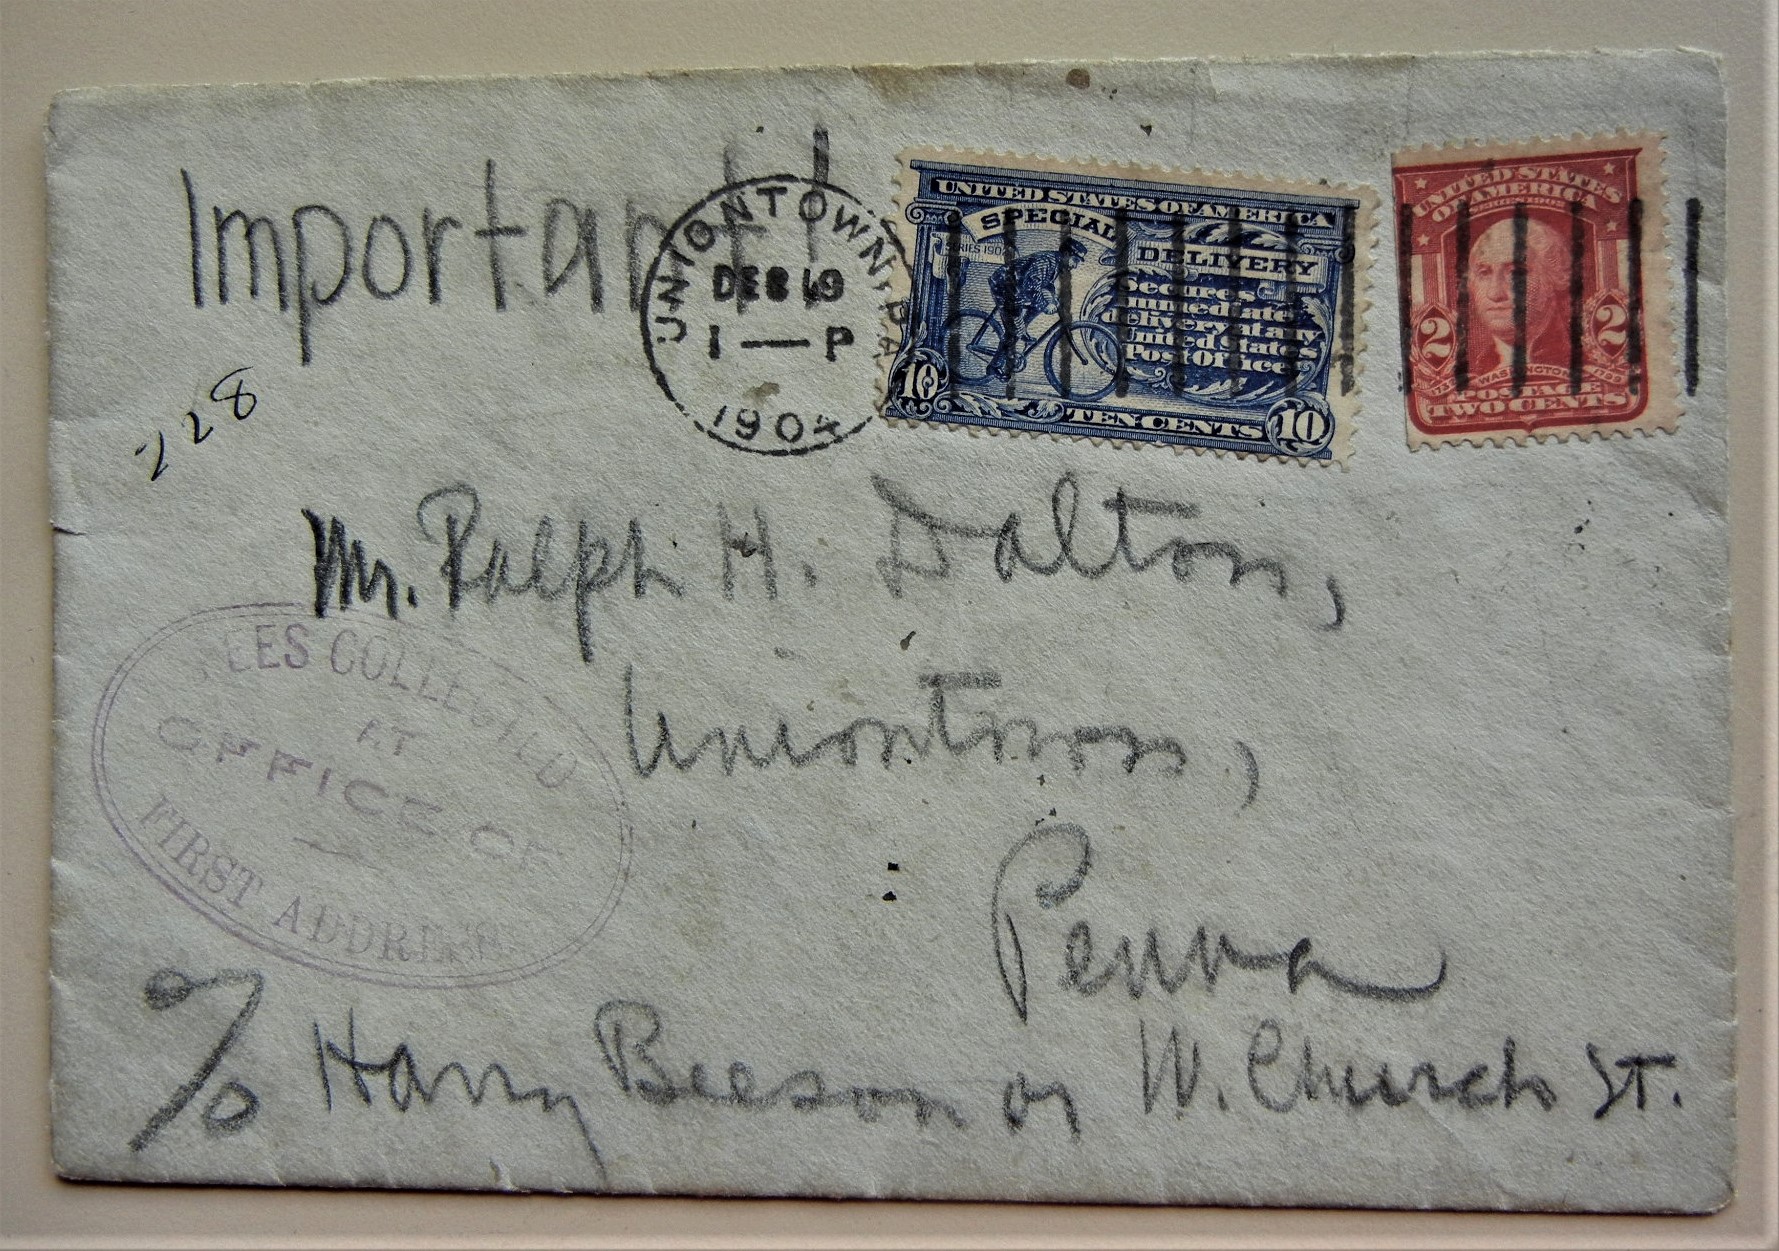 Important!
UNIONTOWN, PA.
DEC 19
1 — P
1904
UNITED STATES OF AMERICA
SPECIAL
DELIVERY
SERIES 1902
Secures
immediate
delivery at any
United States
Post Office
10 TEN CENTS 10
UNITED STATES
OF AMERICA
SERIES 1902
2 2
WASHINGTON
POSTAGE
TWO CENTS
228
Mr. Ralph H. Dalton,
Uniontown,
Penna
FEES COLLECTED
AT
OFFICE OF
FIRST ADDRESS
c/o Harry Beeson or W. Church St.